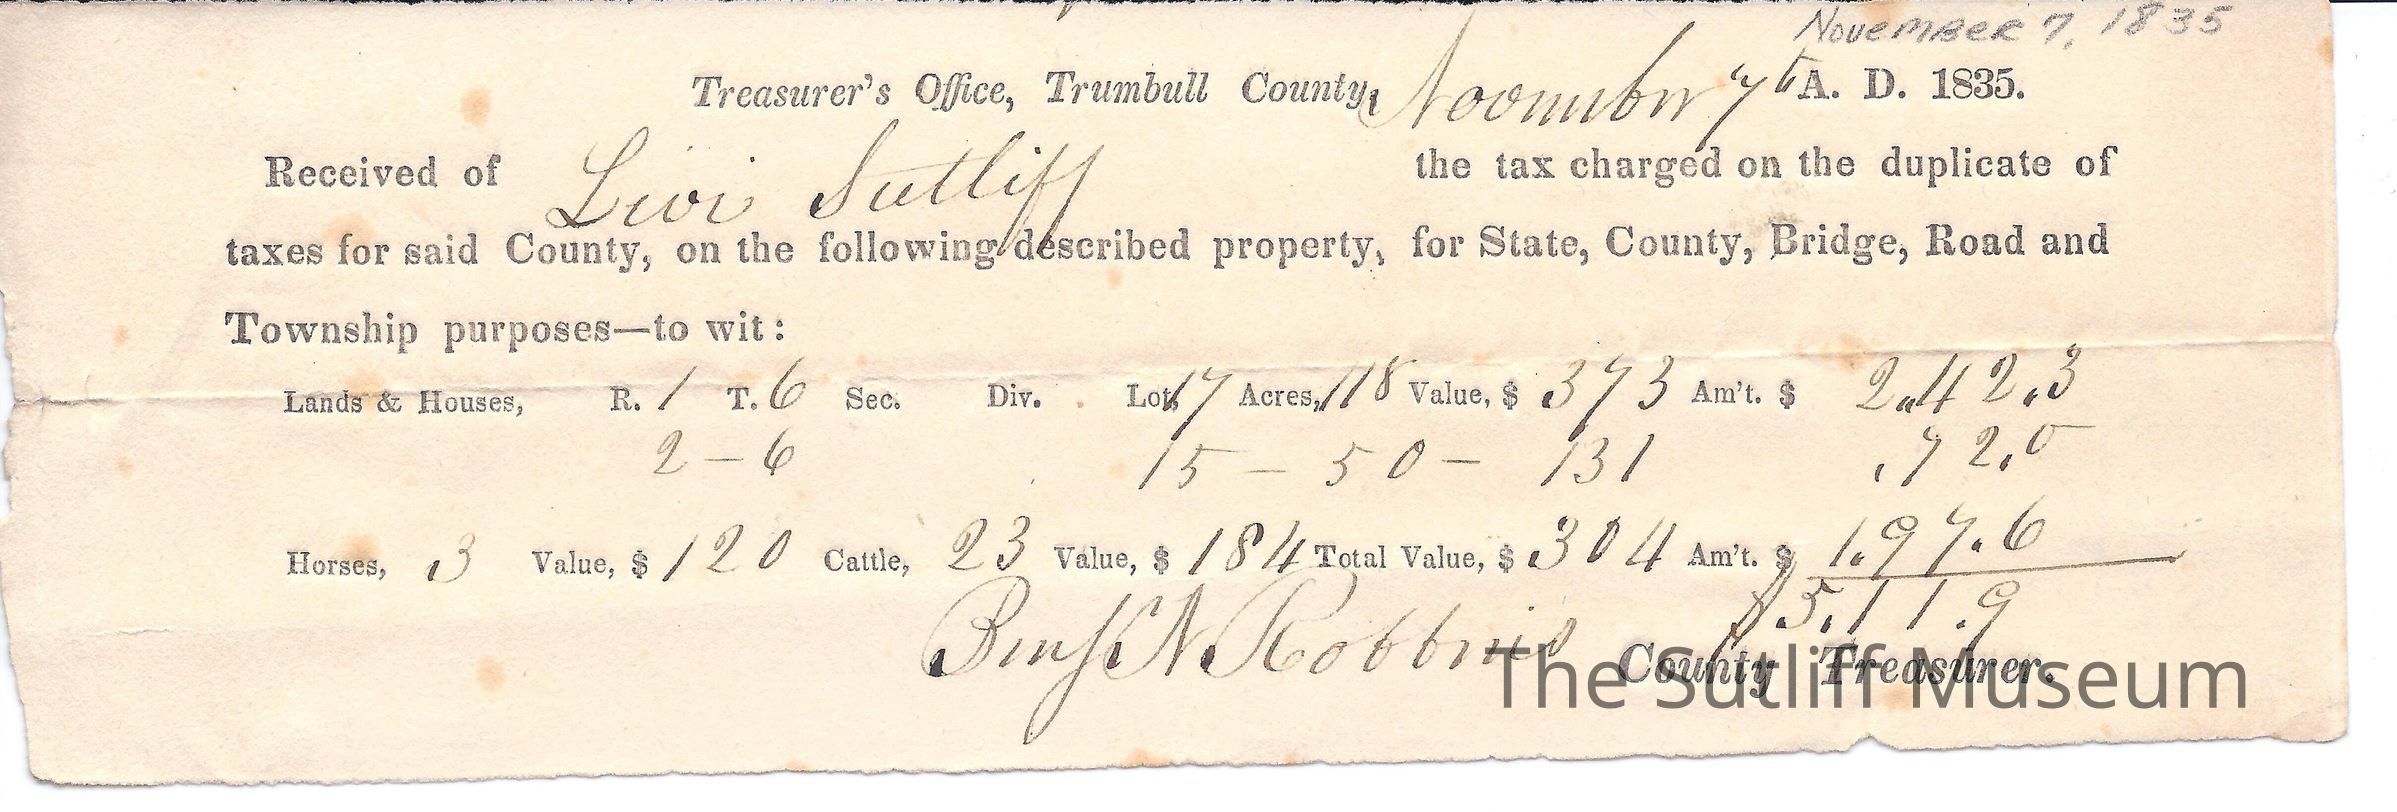 November 7, 1835
Treasurer's Office, Trumbull County, November 7th A. D. 1835.
Received of Levi Sutliff the tax charged on the duplicate of
taxes for said County, on the following described property, for State, County, Bridge, Road and
Township purposes—to wit:
Lands & Houses, R. 1 T. 6 Sec. Div. Lot, 17 Acres, 118 Value, $ 373 Am't. $ 2.42.3
2 – 6 15 – 50 – 131 .72.0
Horses, 3 Value, $ 120 Cattle, 23 Value, $ 184 Total Value, $ 304 Am't. $ 1.97.6
$5.11.9
Benj N. Robbins County Treasurer.
The Sutliff Museum